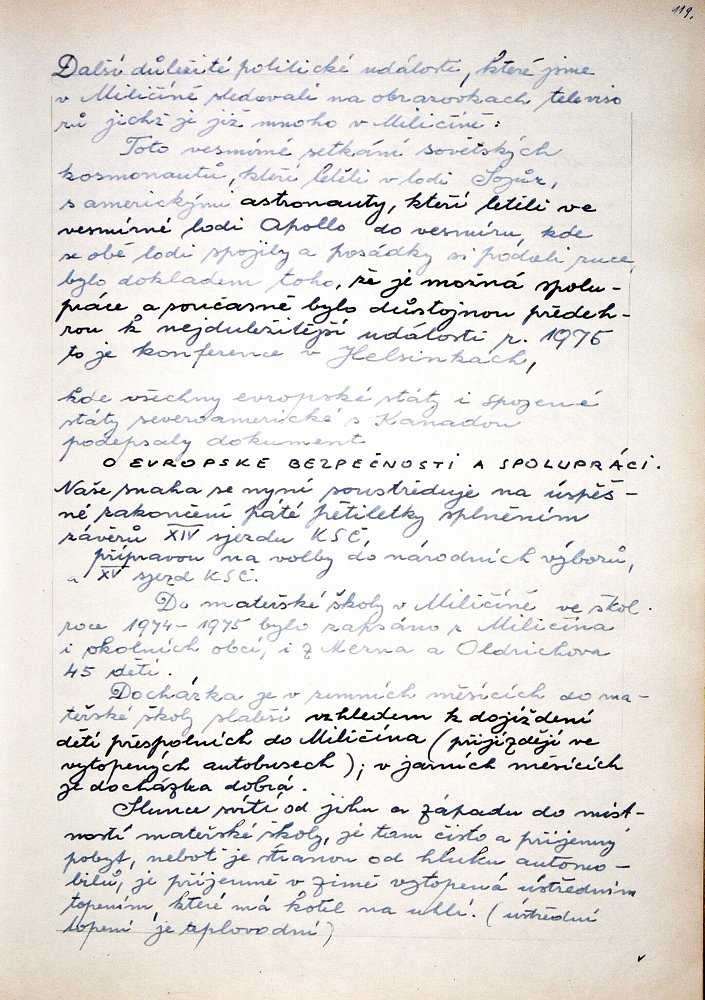 119.
Další důležité politické události, které jsme
v Miličíně sledovali na obrazovkách televiso
rů jichž je již mnoho v Miličíně:
Toto vesmírné setkání sovětských
kosmonautů, kteří letěli v lodi Sojůz,
s americkými astronauty, kteří letěli ve
vesmírné lodi Apollo do vesmíru, kde
se obě lodi spojily a posádky si podali ruce,
bylo dokladem toho, že je možná spolu-
práce a současně bylo důstojnou předeh-
rou k nejduležitější události r. 1975
to je konference v Helsinkách,
kde všechny evropské státy i spojené
státy severoamerické s Kanadou
podepsaly dokument
O EVROPSKÉ BEZPEČNOSTI A SPOLUPRÁCI.
Naše snaha se nyní soustřeďuje na úspěš-
né zakončení páté pětiletky splněním
závěrů XIV sjezdu KSČ,
přípravou na volby do národních výborů,
a XV sjezd KSČ.
Do mateřské školy v Miličíně ve škol.
roce 1974-1975 bylo zapsáno z Miličína
i okolních obcí, i z Mezna a Oldřichova
45 dětí.
Docházka je v zimních měsících do ma-
teřské školy slabší vzhledem k dojíždění
dětí přespolních do Miličína (přijíždějí ve
vytopených autobusech); v jarních měsících
je docházka dobrá.
Slunce svítí od jihu a západu do míst-
ností mateřské školy, je tam čisto a příjemný
pobyt, neboť je stranou od hluku automo-
bilů, je příjemně v zimě vytopená ústředním
topením, které má kotel na uhlí. (ústřední
topení je teplovodní)